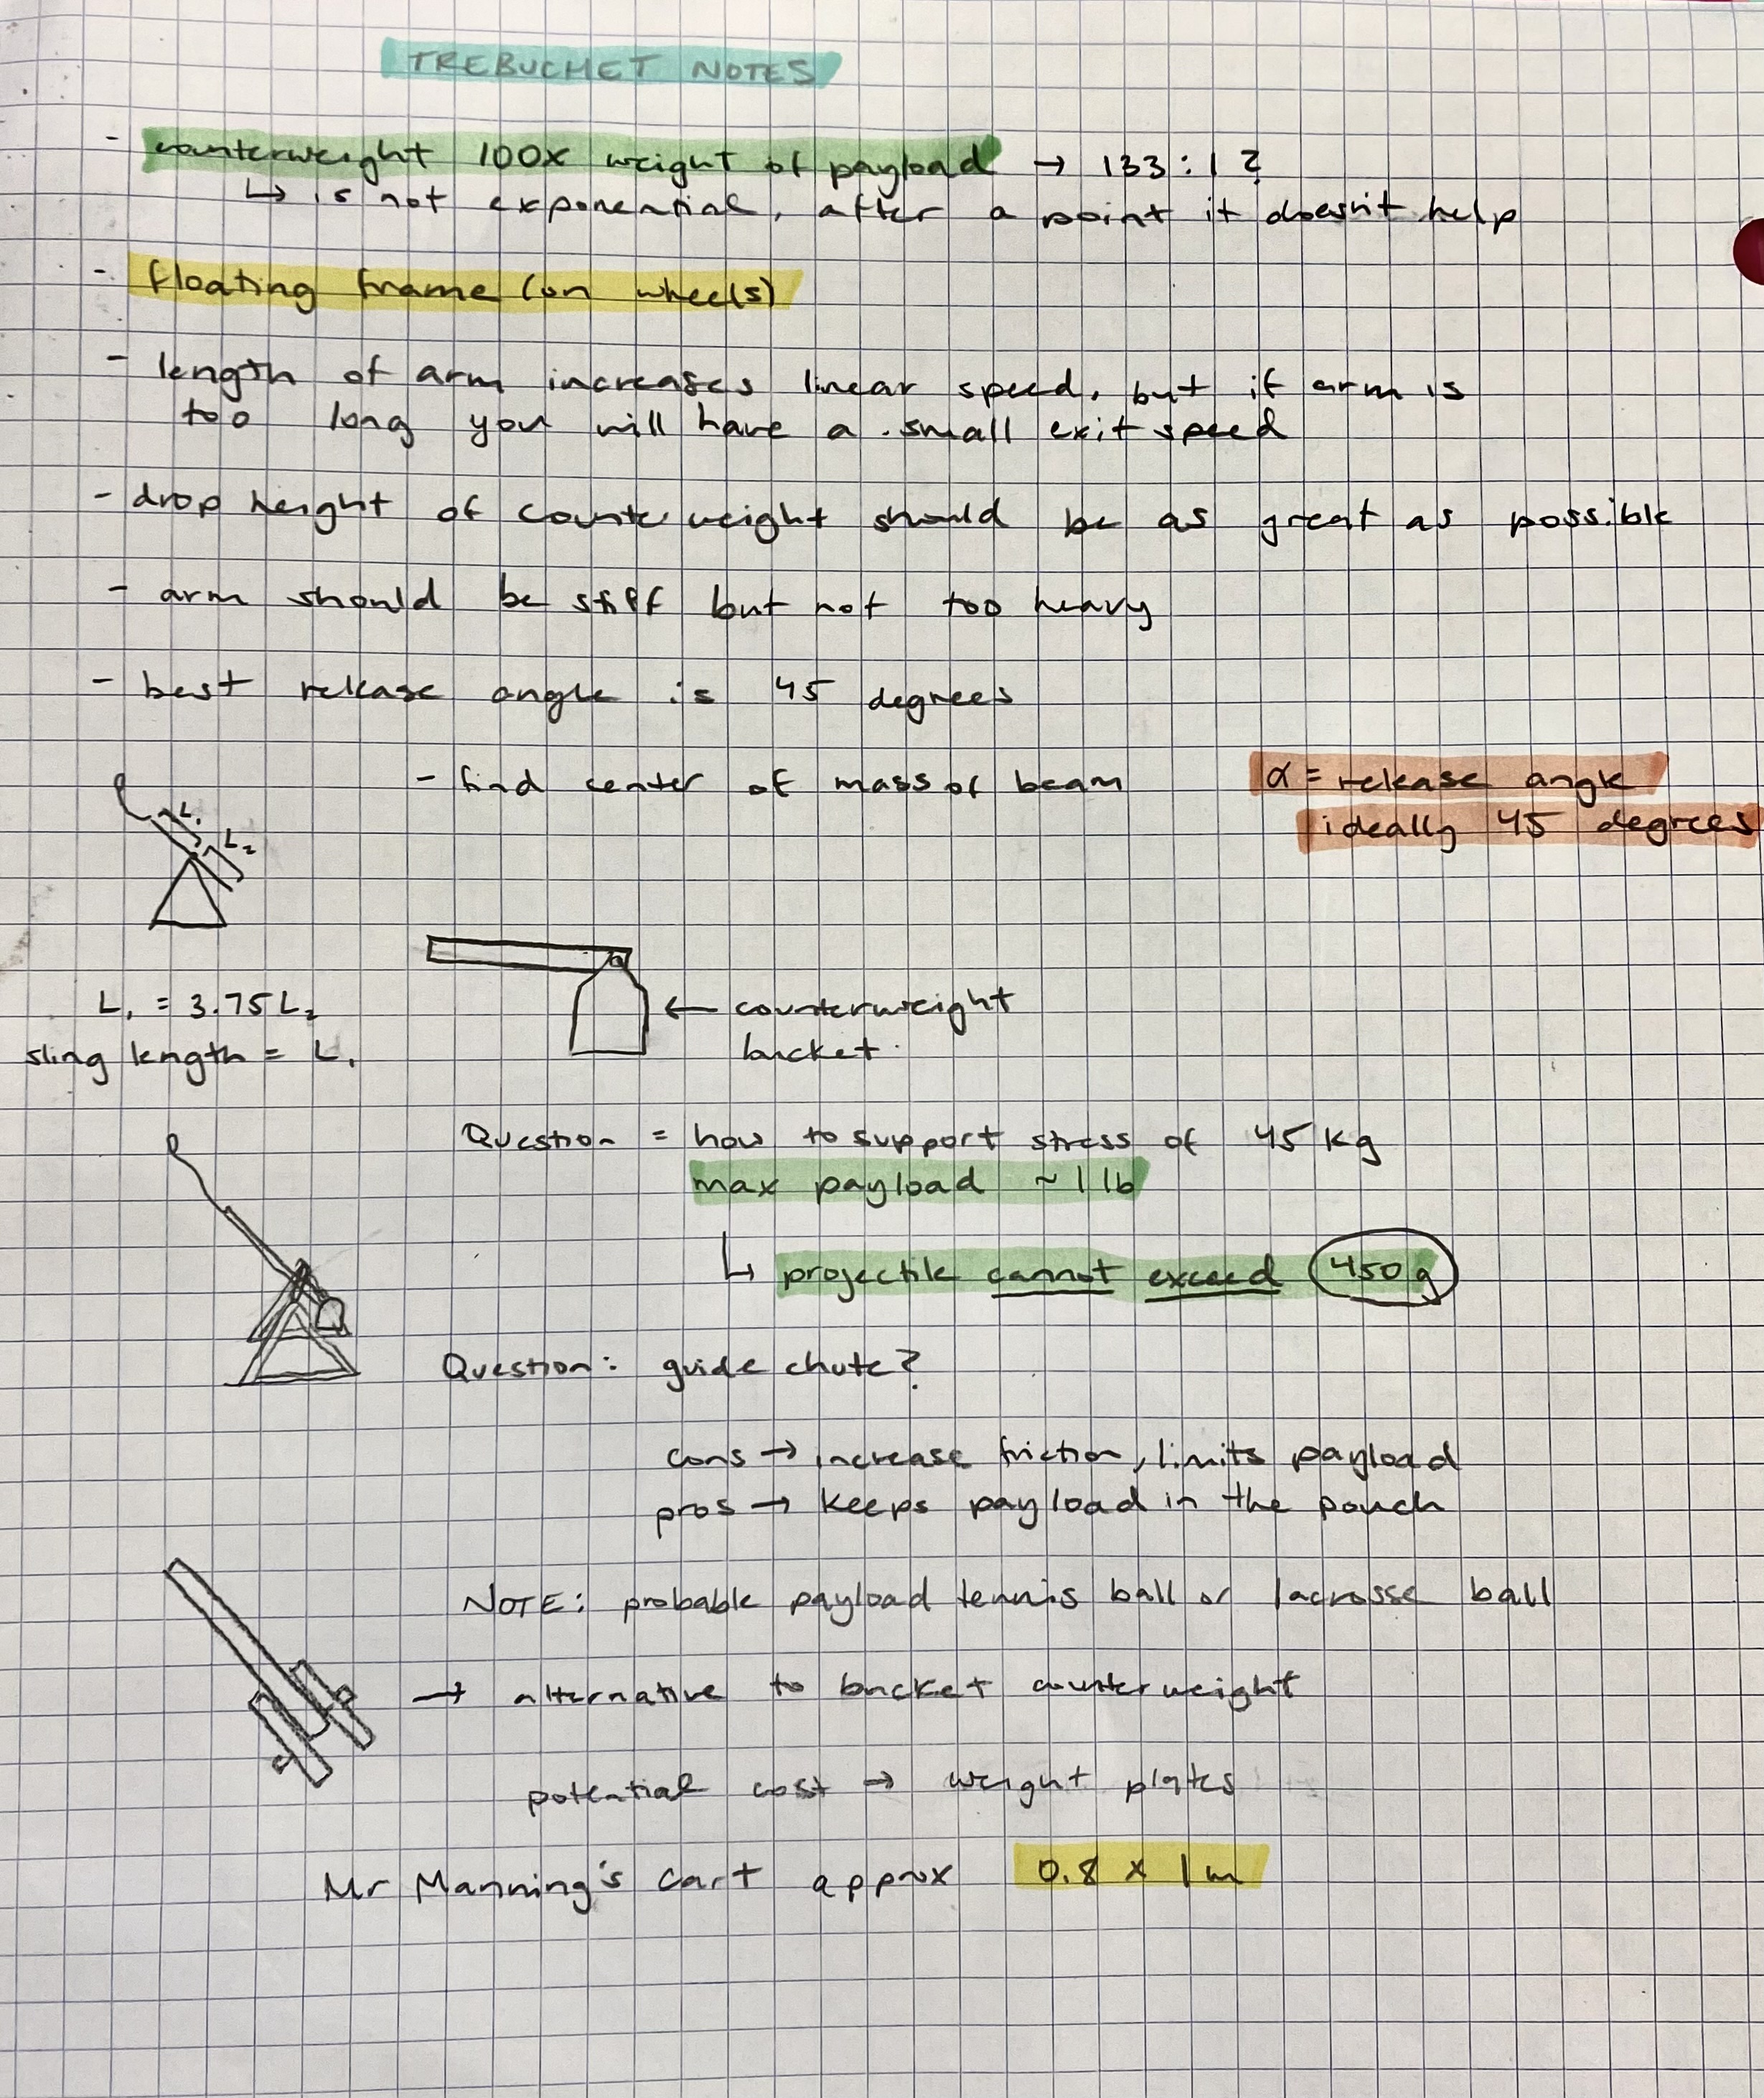 TREBUCHET NOTES
- counterweight 100x weight of payload → 133:1?
↳ is not exponential, after a point it doesn't help
- floating frame (on wheels)
- length of arm increases linear speed, but if arm is
too long you will have a small exit speed
- drop height of counterweight should be as great as possible
- arm should be stiff but not too heavy
- best release angle is 45 degrees
- find center of mass of beam
α = release angle
ideally 45 degrees
L₁
L₂
L₁ = 3.75L₂
sling length = L₁
← counterweight
bucket
Question = how to support stress of 45 kg
max payload ~ 1 lb
↳ projectile cannot exceed 450g
Question: guide chute?
cons → increase friction, limits payload
pros → keeps payload in the pouch
NOTE: probable payload tennis ball or lacrosse ball
→ alternative to bucket counterweight
potential cost → weight plates
Mr Manning's cart approx 0.8 x 1m